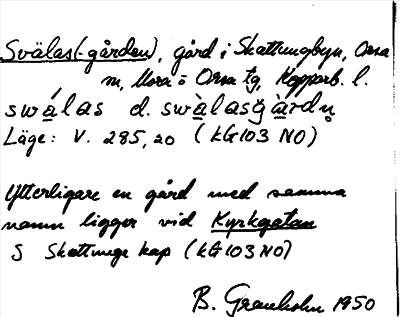 Svälas(-gården), gård i Skattungbyn, Orsa
sn, Mora o Orsa tg, Kopparb. l.
swálas el. swàlasgàrdn
Läge: V. 285,20 (kG103 NO)
Ytterligare en gård med samma
namn ligger vid Kyrkgatan
S Skattunge kap (kG103 NO)
B. Granholm 1950